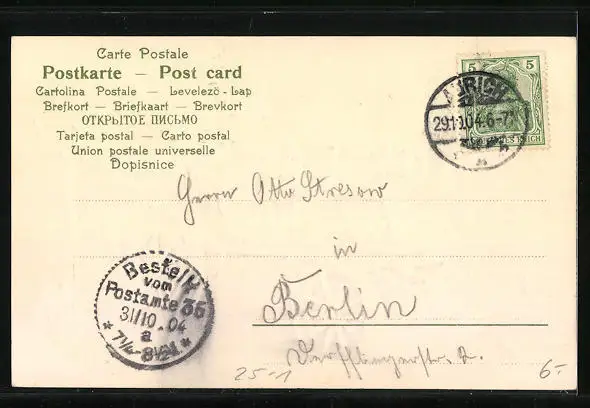 Carte Postale
Postkarte — Post card
Cartolina Postale — Levelező-Lap
Brefkort — Briefkaart — Brevkort
ОТКРЫТОЕ ПИСЬМО
Tarjeta postal — Carto postal
Union postale universelle
Dopisnice
5 5
AURICH
29.10.04.6-7
Herrn Otto Stresow
in
Berlin
Derfflingerstr. 2.
Bestellt
vom
Postamte 35
31/10.04
a
* 7¼-8½V *
25-1
6-